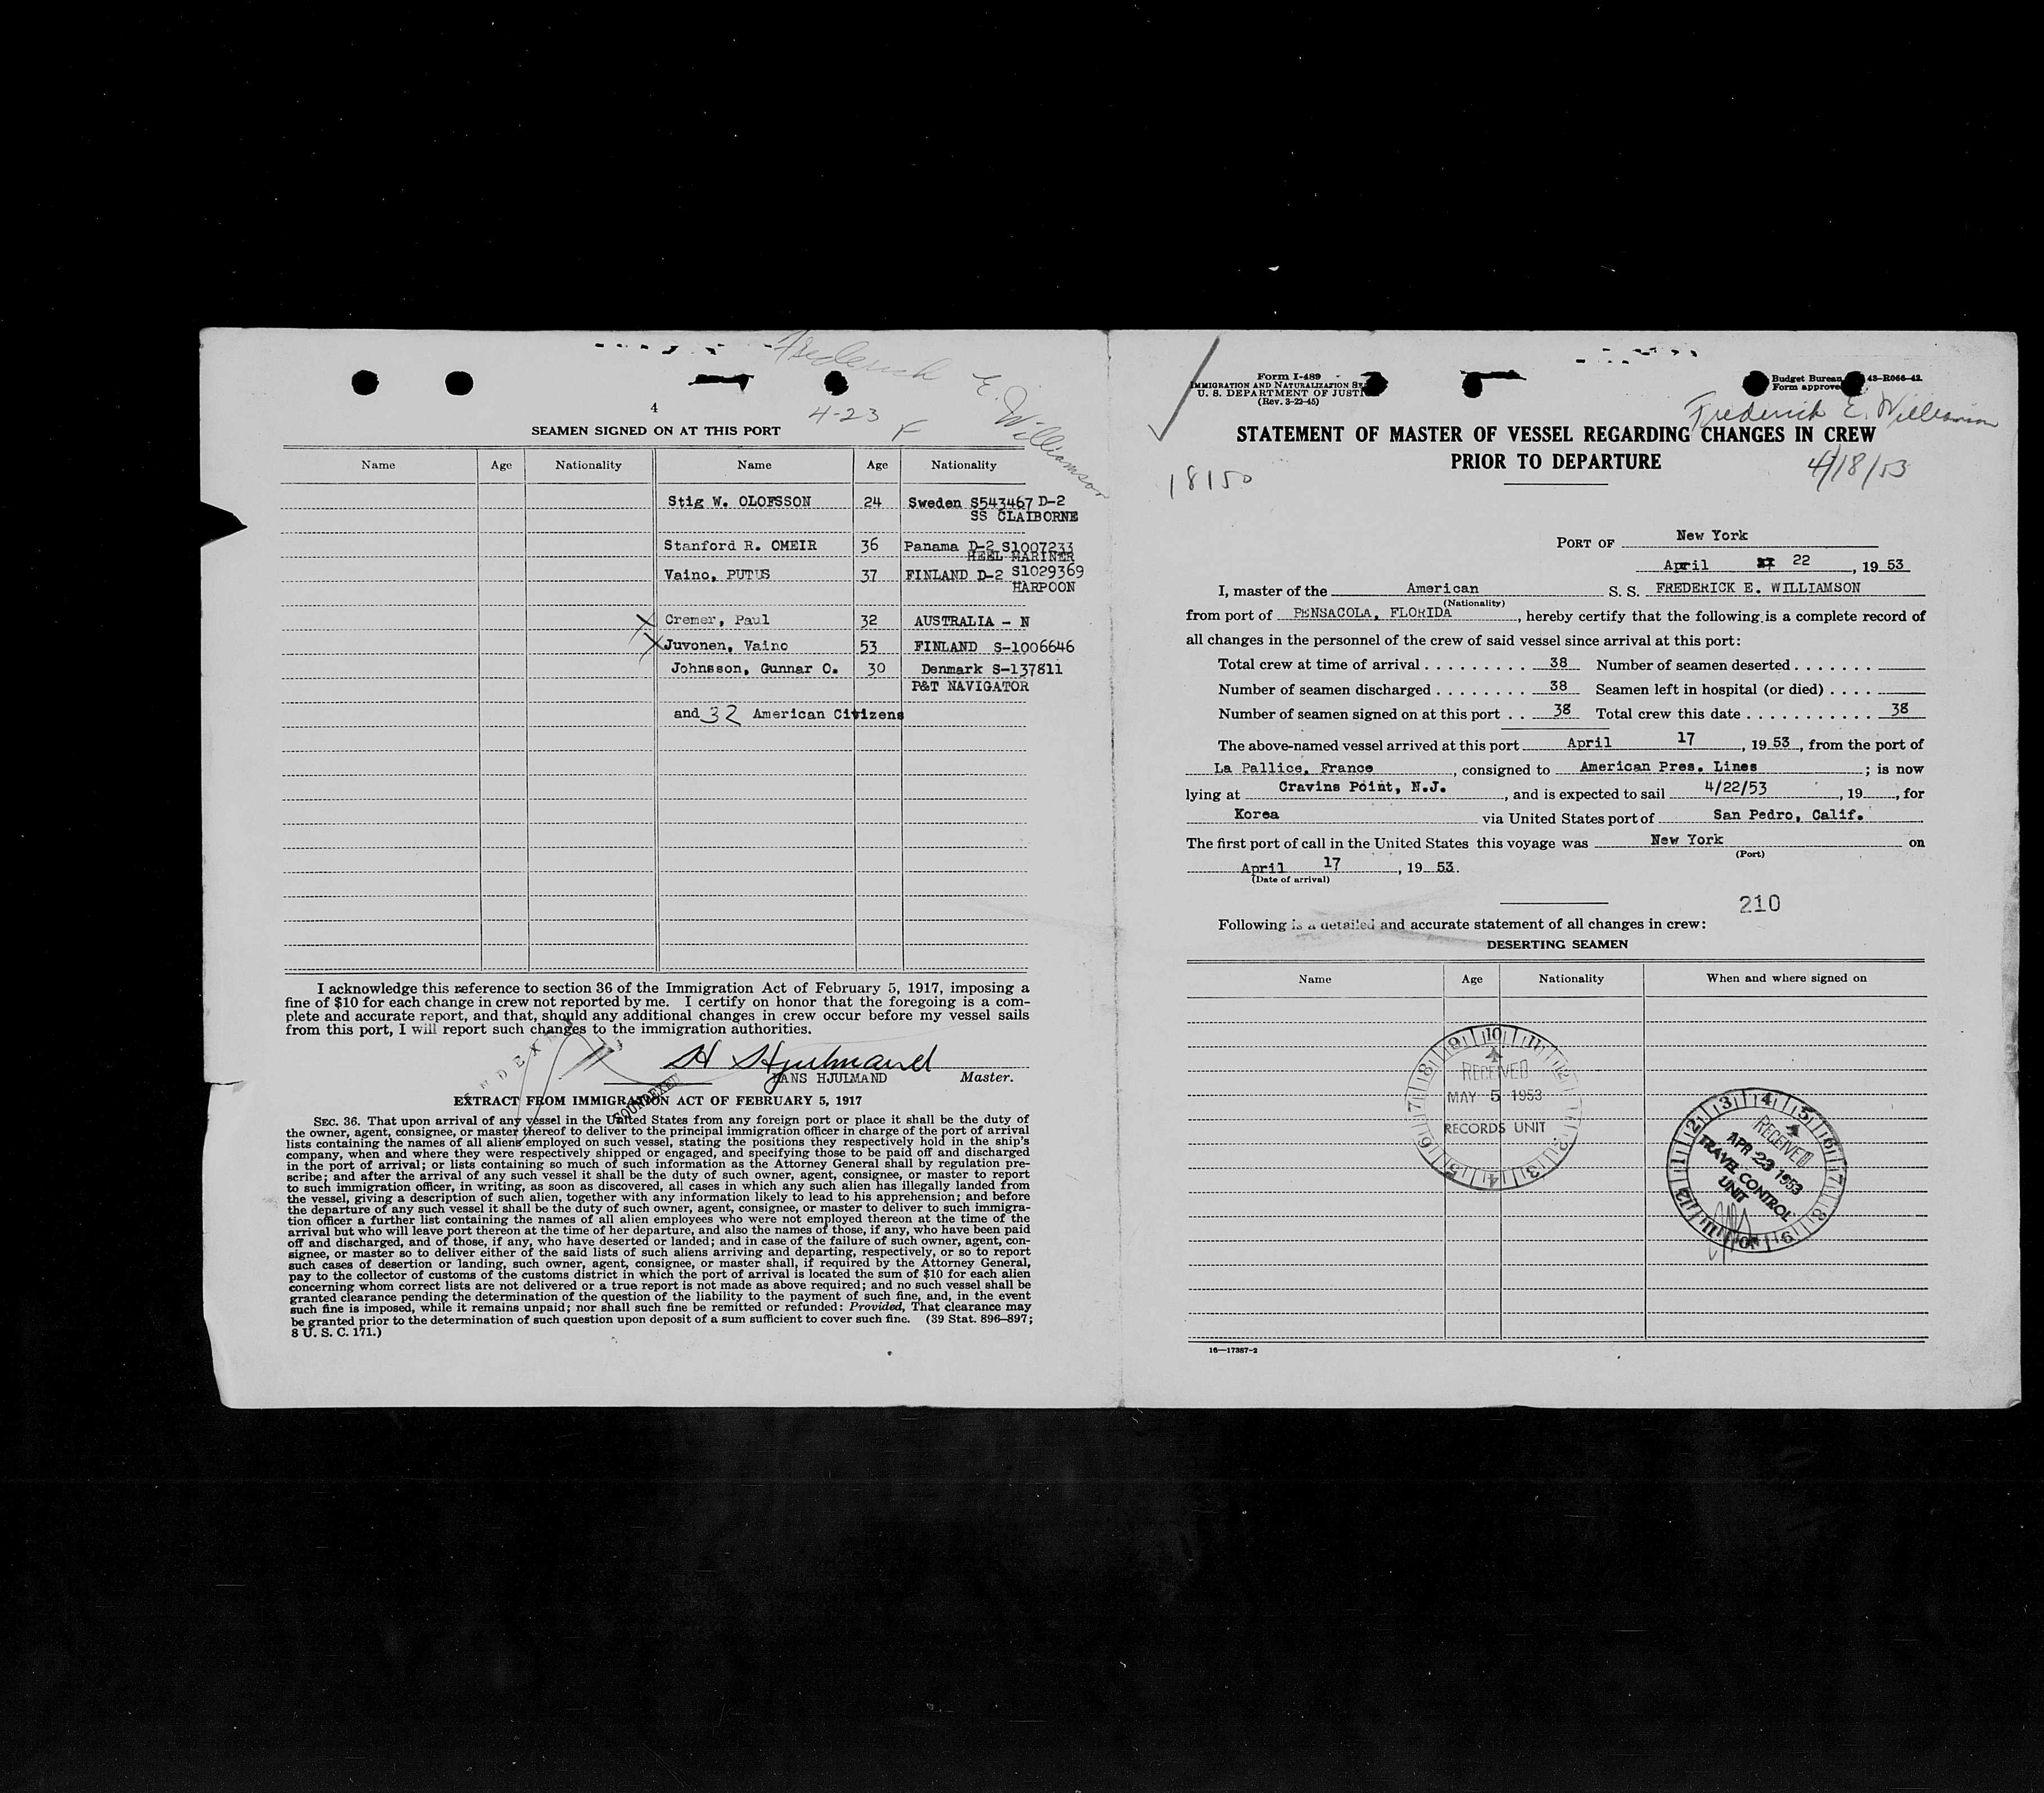 Frederick E. Williamson
4
4-23
SEAMEN SIGNED ON AT THIS PORT
Name Age Nationality Name Age Nationality
Stig W. OLOFSSON 24 Sweden S543467 D-2
SS CLAIBORNE
Stanford R. OMEIR 36 Panama D-2 S1007233
HEEL MARINER
Vaino, PUTUS 37 FINLAND D-2 S1029369
HARPOON
X Cremer, Paul 32 AUSTRALIA - N
X Juvonen, Vaino 53 FINLAND S-1006646
Johnsson, Gunnar O. 30 Denmark S-137811
P&T NAVIGATOR
and 32 American Citizens
I acknowledge this reference to section 36 of the Immigration Act of February 5, 1917, imposing a
fine of $10 for each change in crew not reported by me. I certify on honor that the foregoing is a com-
plete and accurate report, and that, should any additional changes in crew occur before my vessel sails
from this port, I will report such changes to the immigration authorities.
H Hjulmand
HANS HJULMAND Master.
EXTRACT FROM IMMIGRATION ACT OF FEBRUARY 5, 1917
SEC. 36. That upon arrival of any vessel in the United States from any foreign port or place it shall be the duty of
the owner, agent, consignee, or master thereof to deliver to the principal immigration officer in charge of the port of arrival
lists containing the names of all aliens employed on such vessel, stating the positions they respectively hold in the ship's
company, when and where they were respectively shipped or engaged, and specifying those to be paid off and discharged
in the port of arrival; or lists containing so much of such information as the Attorney General shall by regulation pre-
scribe; and after the arrival of any such vessel it shall be the duty of such owner, agent, consignee, or master to report
to such immigration officer, in writing, as soon as discovered, all cases in which any such alien has illegally landed from
the vessel, giving a description of such alien, together with any information likely to lead to his apprehension; and before
the departure of any such vessel it shall be the duty of such owner, agent, consignee, or master to deliver to such immigra-
tion officer a further list containing the names of all alien employees who were not employed thereon at the time of the
arrival but who will leave port thereon at the time of her departure, and also the names of those, if any, who have been paid
off and discharged, and of those, if any, who have deserted or landed; and in case of the failure of such owner, agent, con-
signee, or master so to deliver either of the said lists of such aliens arriving and departing, respectively, or so to report
such cases of desertion or landing, such owner, agent, consignee, or master shall, if required by the Attorney General,
pay to the collector of customs of the customs district in which the port of arrival is located the sum of $10 for each alien
concerning whom correct lists are not delivered or a true report is not made as above required; and no such vessel shall be
granted clearance pending the determination of the question of the liability to the payment of such fine, and, in the event
such fine is imposed, while it remains unpaid; nor shall such fine be remitted or refunded: Provided, That clearance may
be granted prior to the determination of such question upon deposit of a sum sufficient to cover such fine. (39 Stat. 896–897;
8 U. S. C. 171.)
Form I-489
IMMIGRATION AND NATURALIZATION
U. S. DEPARTMENT OF JUSTICE
(Rev. 3-22-45)
Budget Bureau 43-R066-42.
Form approved
Frederick E. Williamson
STATEMENT OF MASTER OF VESSEL REGARDING CHANGES IN CREW
PRIOR TO DEPARTURE
4/18/53
18150
PORT OF New York
April 22, 1953
I, master of the American S. S. FREDERICK E. WILLIAMSON
(Nationality)
from port of PENSACOLA, FLORIDA, hereby certify that the following is a complete record of
all changes in the personnel of the crew of said vessel since arrival at this port:
Total crew at time of arrival . . . . . . . . . 38 Number of seamen deserted . . . . . . .
Number of seamen discharged . . . . . . . . 38 Seamen left in hospital (or died) . . . .
Number of seamen signed on at this port . . 38 Total crew this date . . . . . . . . . . . 38
The above-named vessel arrived at this port April 17, 1953, from the port of
La Pallice, France, consigned to American Pres. Lines; is now
lying at Cravins Point, N.J., and is expected to sail 4/22/53, 19, for
Korea via United States port of San Pedro, Calif.
The first port of call in the United States this voyage was New York on
(Port)
April 17, 1953.
(Date of arrival)
210
Following is a detailed and accurate statement of all changes in crew:
DESERTING SEAMEN
Name Age Nationality When and where signed on
RECEIVED
MAY 5 1953
RECORDS UNIT
RECEIVED
APR 23 1953
TRAVEL CONTROL
UNIT
16—17387-2